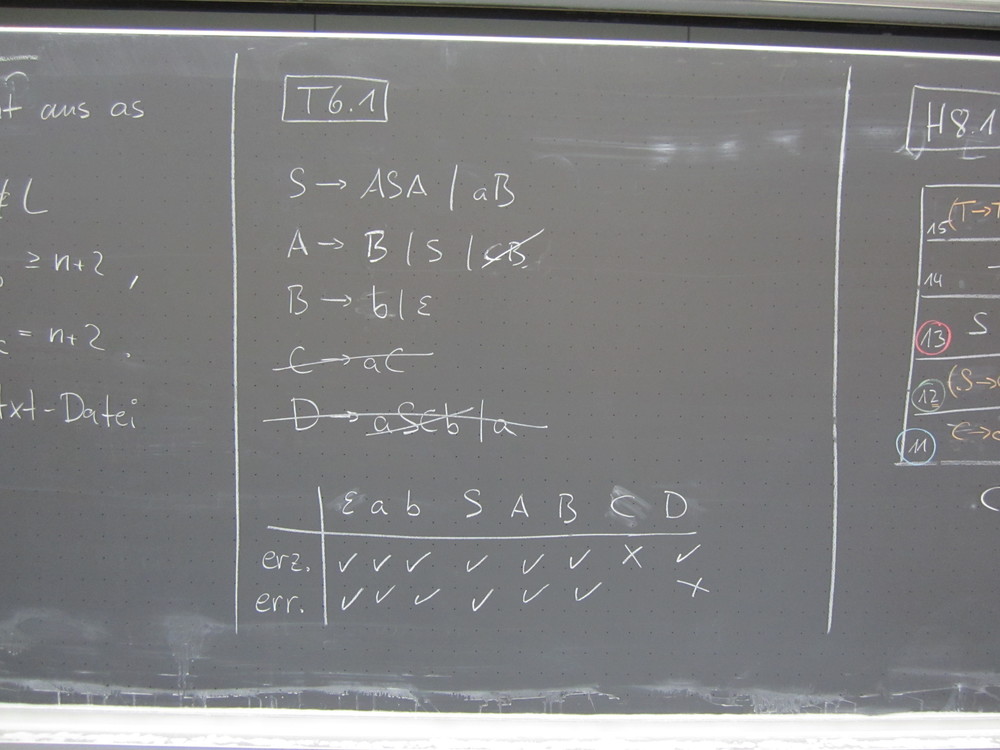 aus as
L
≥ n+2 ,
= n+2 .
txt-Datei
T6.1
S → ASA | aB
A → B | S | CB
B → b | ε
C → aC
D → aSCb | a
ε a b S A B C D
erz. ✓ ✓ ✓ ✓ ✓ ✓ x ✓
err. ✓ ✓ ✓ ✓ ✓ ✓ x
H8.1
15 (T→T
14
13 S
12 (S→
11